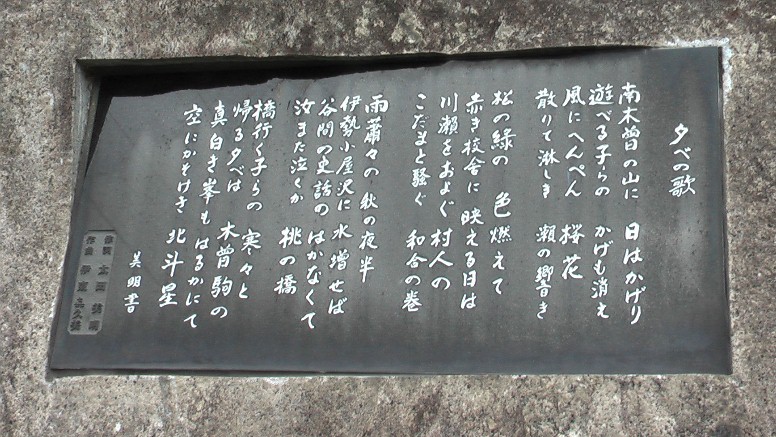 夕べの歌
南木曽の山に 日はかげり
遊べる子らの かげも消え
風にへんぺん 桜花
散りて淋しき 瀬の響き
松の緑の 色燃えて
赤き校舎に 映える日は
川瀬をおよぐ 村人の
こだまと騒ぐ 和合の巻
雨蕭々の 秋の夜半
伊勢小屋沢に 水増せば
谷間の史話の はかなくて
汝また泣くか 桃の橋
橋行く子らの 寒々と
帰る夕べは 木曽駒の
真白き峯も はるかにて
空にかそけき 北斗星
美明書
作詞 太田
作曲 伊東